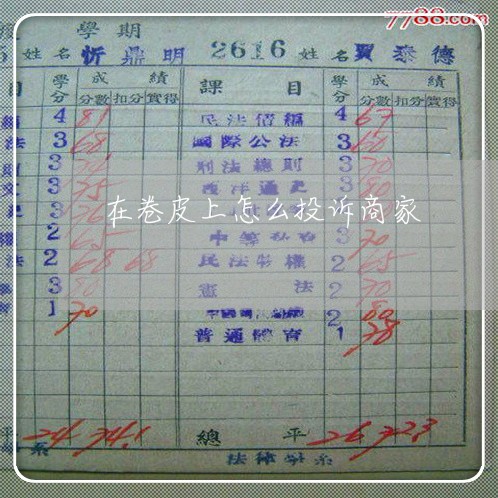 7788.com
學期
姓名 忻鼎明 2616 姓名 賈泰德
目 學分 成績 課目 學分 成績
分數 扣分 實得 分數 扣分 實得
4 81 民法債編 4 67
法 3 68 國際公法 3 60
3 刑法總則 3 70
3 75 西洋通史 3 80
3 76
在卷皮上怎么投诉商家
2 65 中等私有 3 70
法 2 68 68 民法物權 2 65
3 80 憲法 2 70
1 70 2 80
普通體育 1 78
平 24 74.1 總平 26 72.3
系 法律學系